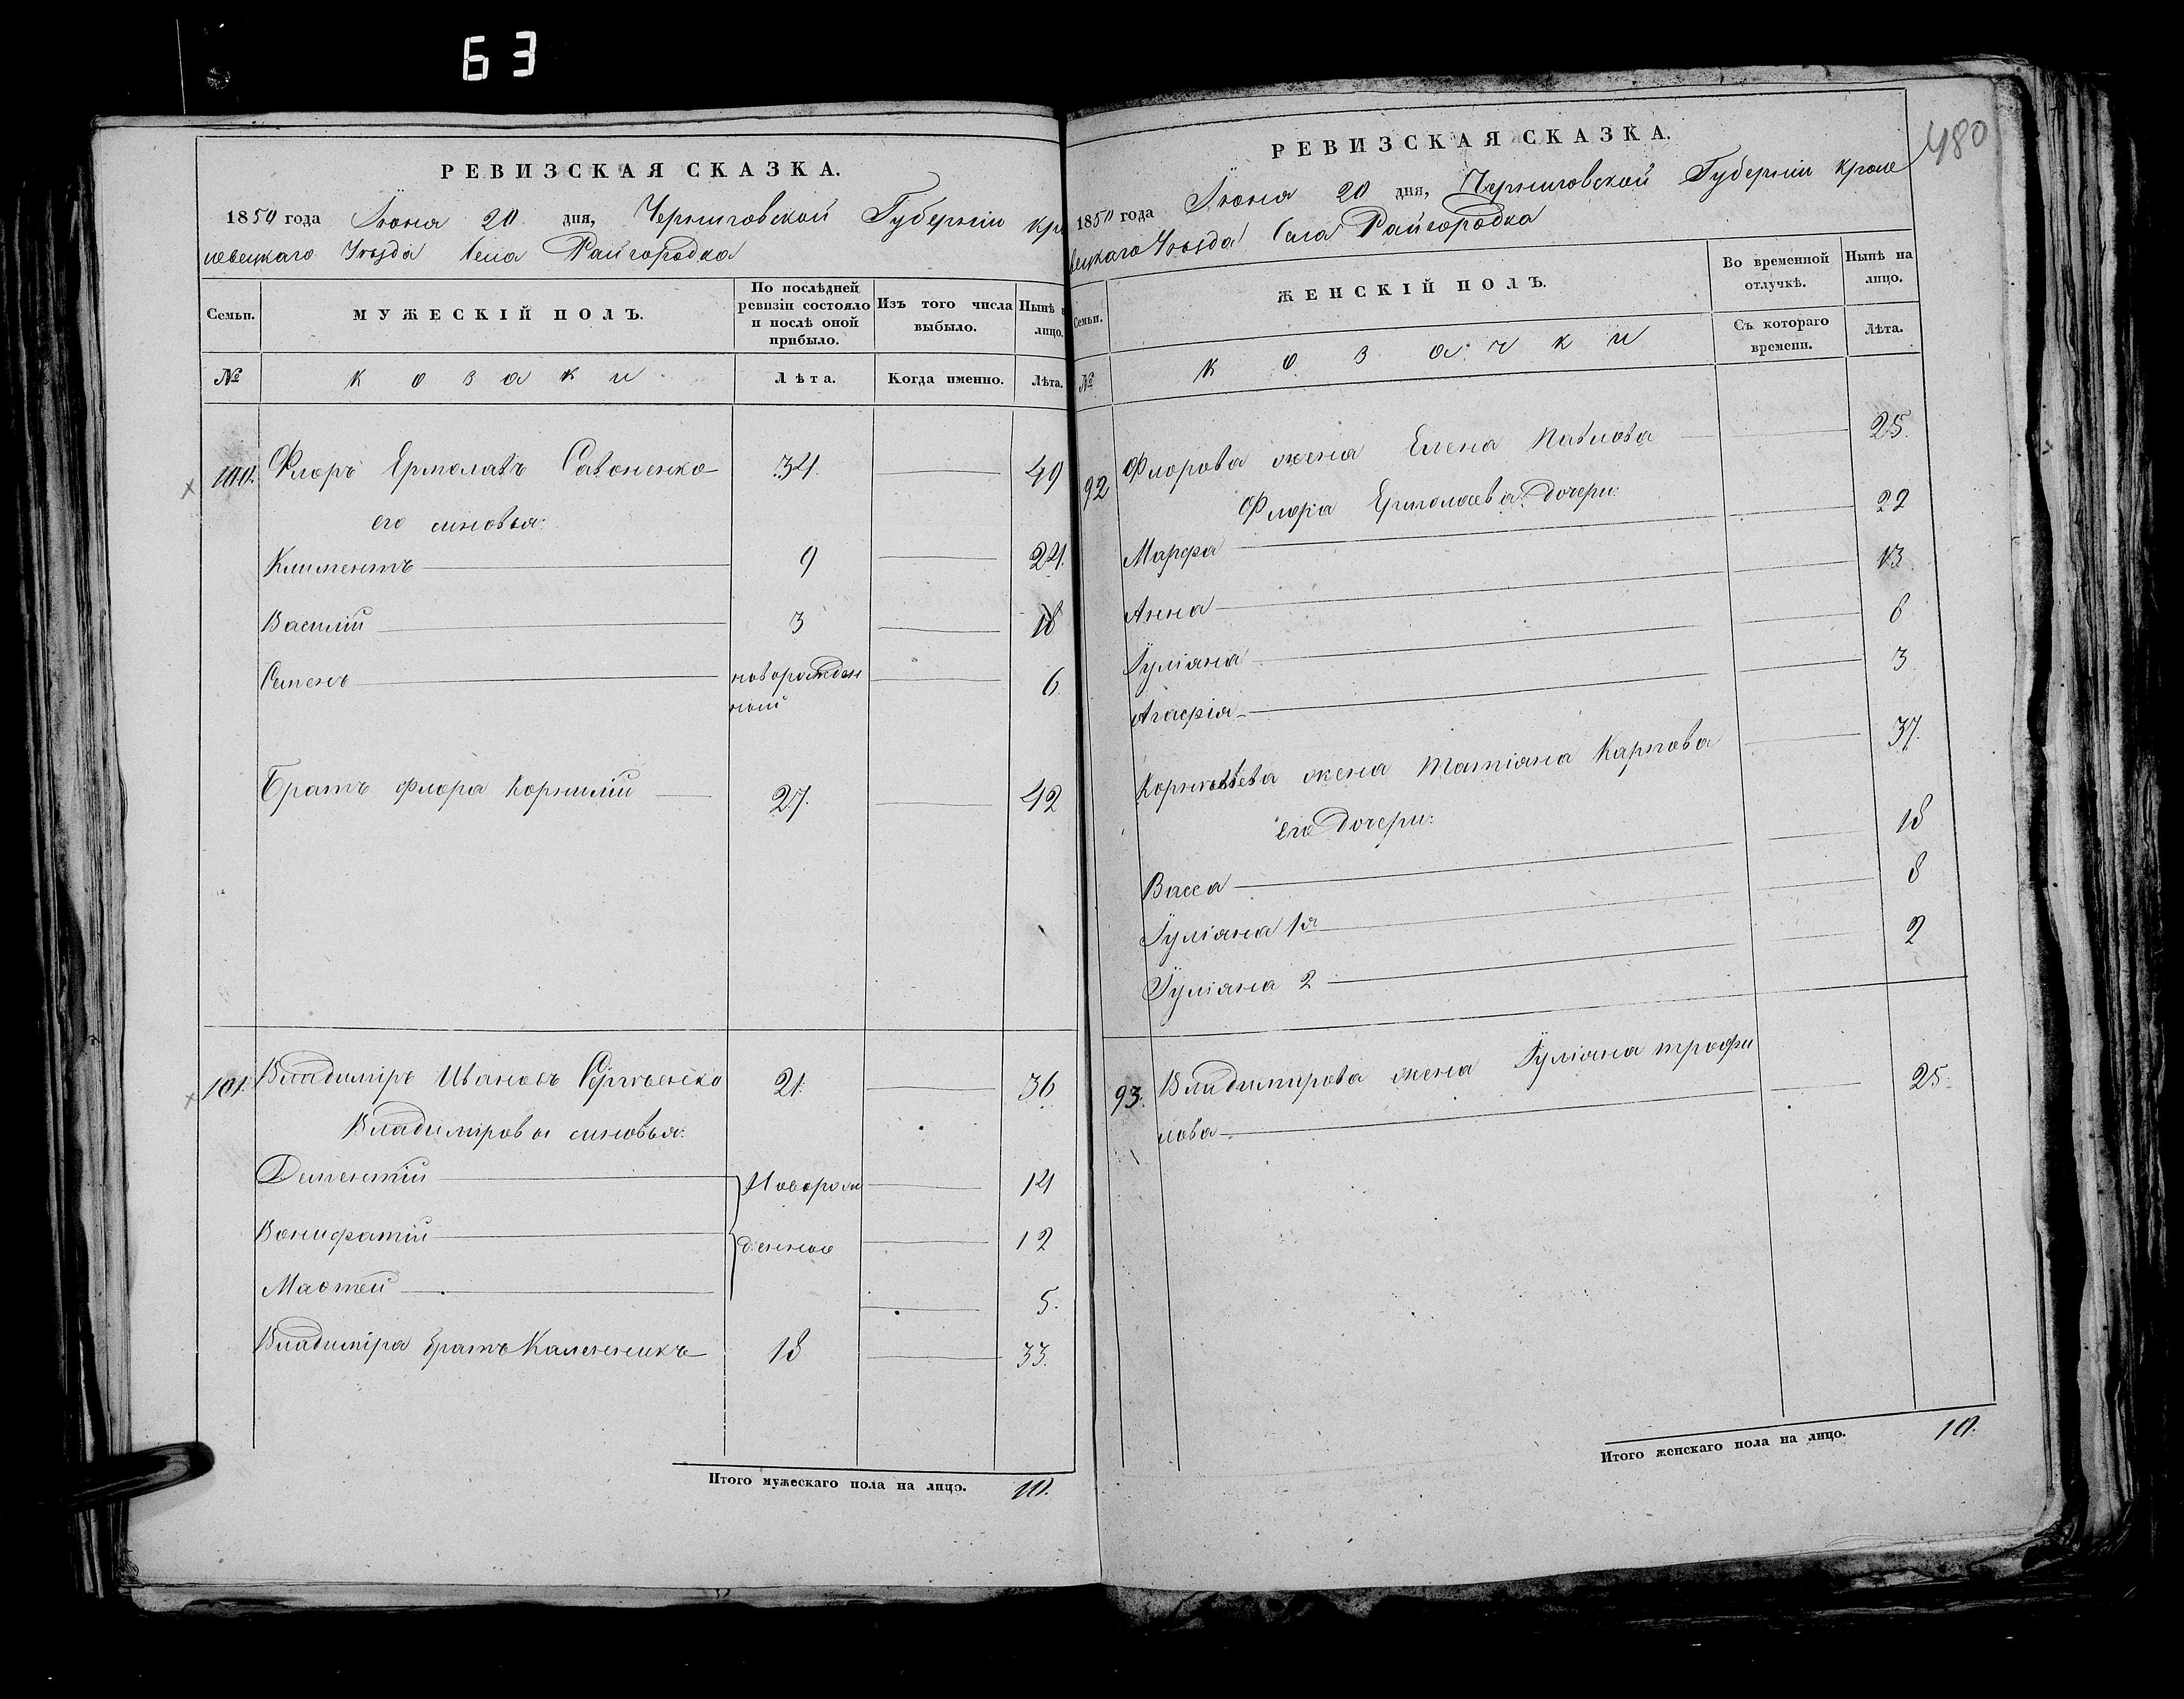 63
РЕВИЗСКАЯ СКАЗКА.
1850 года Іюня 20 дня, Черниговской Губерніи Кро
левецкаго Уѣзда Села Райгородка
Семьи.
МУЖЕСКІЙ ПОЛЪ.
По послѣдней ревизіи состояло и послѣ оной прибыло.
Изъ того числа выбыло.
Нынѣ н лицо.
№
козаки
Лѣта.
Когда именно.
Лѣта.
100. Флоръ Ермолаевъ Савоненко 34. 49
его сыновья:
Климентъ 9 24.
Василій 3 18
Семенъ новорожден 6
ный
Братъ Флора Корнилій 27. 42
101. Владиміръ Ивановъ Сергѣенко 21. 36
Владиміровы сыновья:
Дементій Новорож 14
Вонифатій денные 12
Матвей 5.
Владиміра братъ Каленникъ 18 33.
Итого мужескаго пола на лицо. 10.
480
РЕВИЗСКАЯ СКАЗКА.
1850 года Іюня 20 дня, Черниговской Губерніи Кроле
вецкаго Уѣзда Села Райгородка
Семьи.
ЖЕНСКІЙ ПОЛЪ.
Во временной отлучкѣ.
Нынѣ на лицо.
Съ котораго времени.
Лѣта.
№
козачки
92 Флорова жена Елена Павлова 25.
Флора Ермолаева дочери:
Марфа 22
Анна 13.
Іуліана 6
Агафія 3
Корнѣева жена Татіана Карпова 37.
его дочери:
Васса 18
Іуліана 1я 8
Іуліана 2 2
93. Владимирова жена Іуліана Трофи 25.
мова
Итого женскаго пола на лицо. 10.